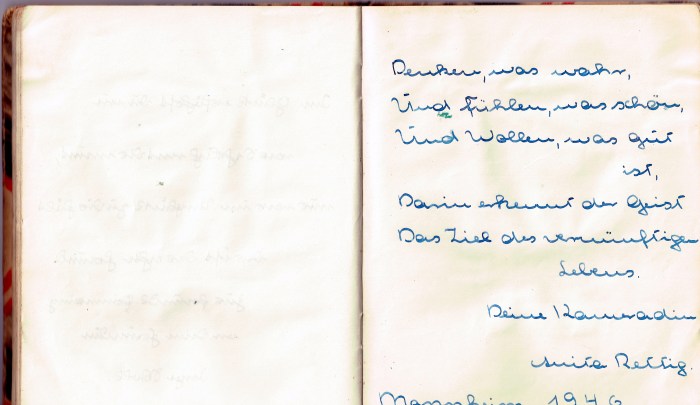 Denken, was wahr,
Und fühlen, was schön,
Und Wollen, was gut
ist,
Darin erkennt der Geist
Das Ziel des vernünftigen
Lebens.
Deine Kameradin
Anita Rettig.
Mannheim 1946